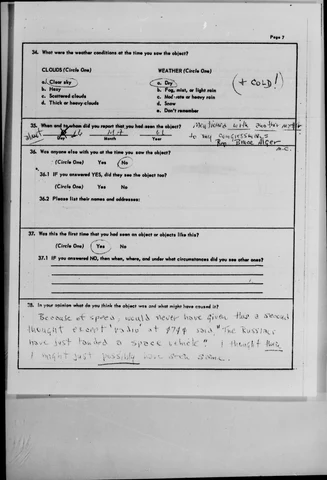 Page 7
34. What were the weather conditions at the time you saw the object?
CLOUDS (Circle One) WEATHER (Circle One)
a. Clear sky a. Dry (+ COLD!)
b. Hazy b. Fog, mist, or light rain
c. Scattered clouds c. Moderate or heavy rain
d. Thick or heavy clouds d. Snow
e. Don't remember
35. When and to whom did you report that you had seen the object? Mentioned with another matter
about
Day Month Year to my congressman
Rep. Bruce Alger
36. Was anyone else with you at the time you saw the object?
(Circle One) Yes No
36.1 IF you answered YES, did they see the object too?
(Circle One) Yes No
36.2 Please list their names and addresses:
37. Was this the first time that you had seen an object or objects like this?
(Circle One) Yes No
37.1 IF you answered NO, then when, where, and under what circumstances did you see other ones?
38. In your opinion what do you think the object was and what might have caused it?
Because of speed, would never have given this a second
thought except "radio" at said "The Russians
have just landed a space vehicle". I thought
I might just possibly have seen same.